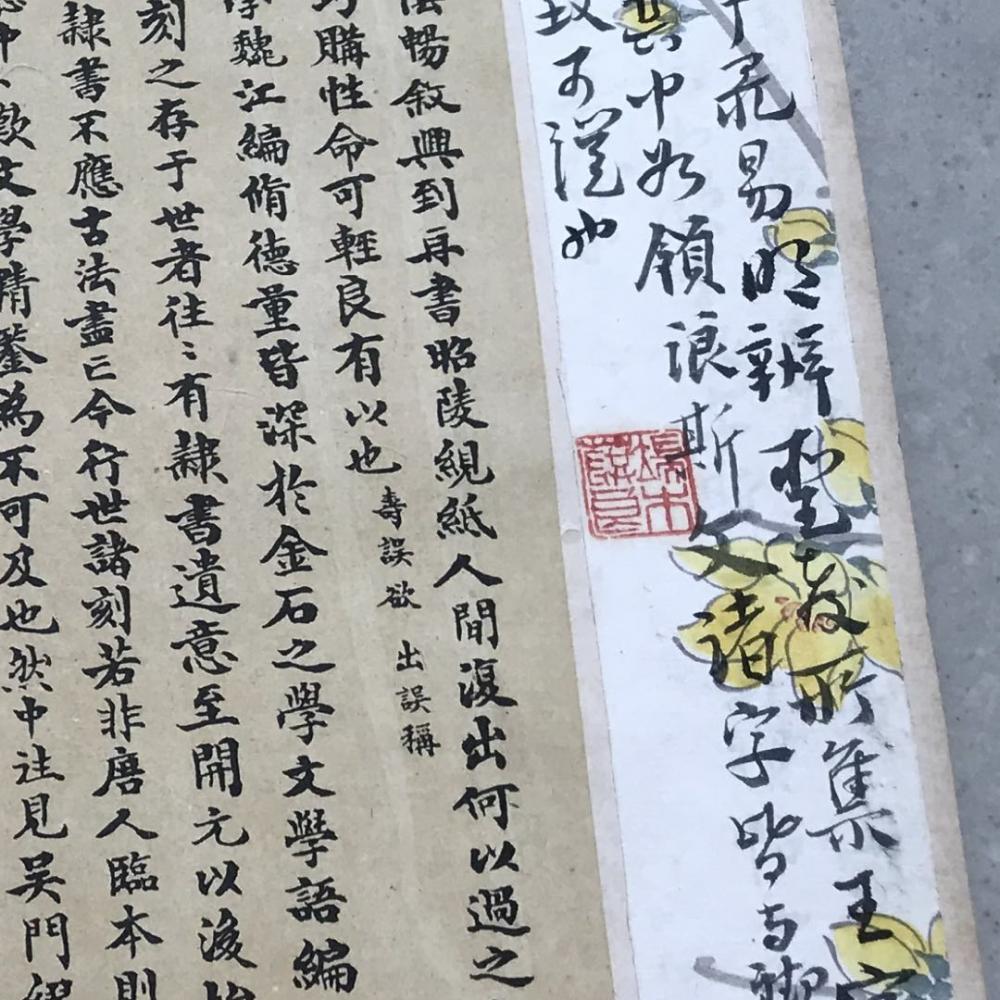 易明辨 楚 友所集王
斯人諸字皆与
其中如領浪
致可謹也
暢敘興到再書昭陵繭紙人間復出何以過之
購性命可輕良有以也 壽誤欲 出誤稱
魏江編脩德量皆深於金石之學文學語編
刻之存于世者往〻有隸書遺意至開元以後
隸書不應古法盡亡今行世諸刻若非唐人臨本則
文學精鑒為不可及也然中注見吳門